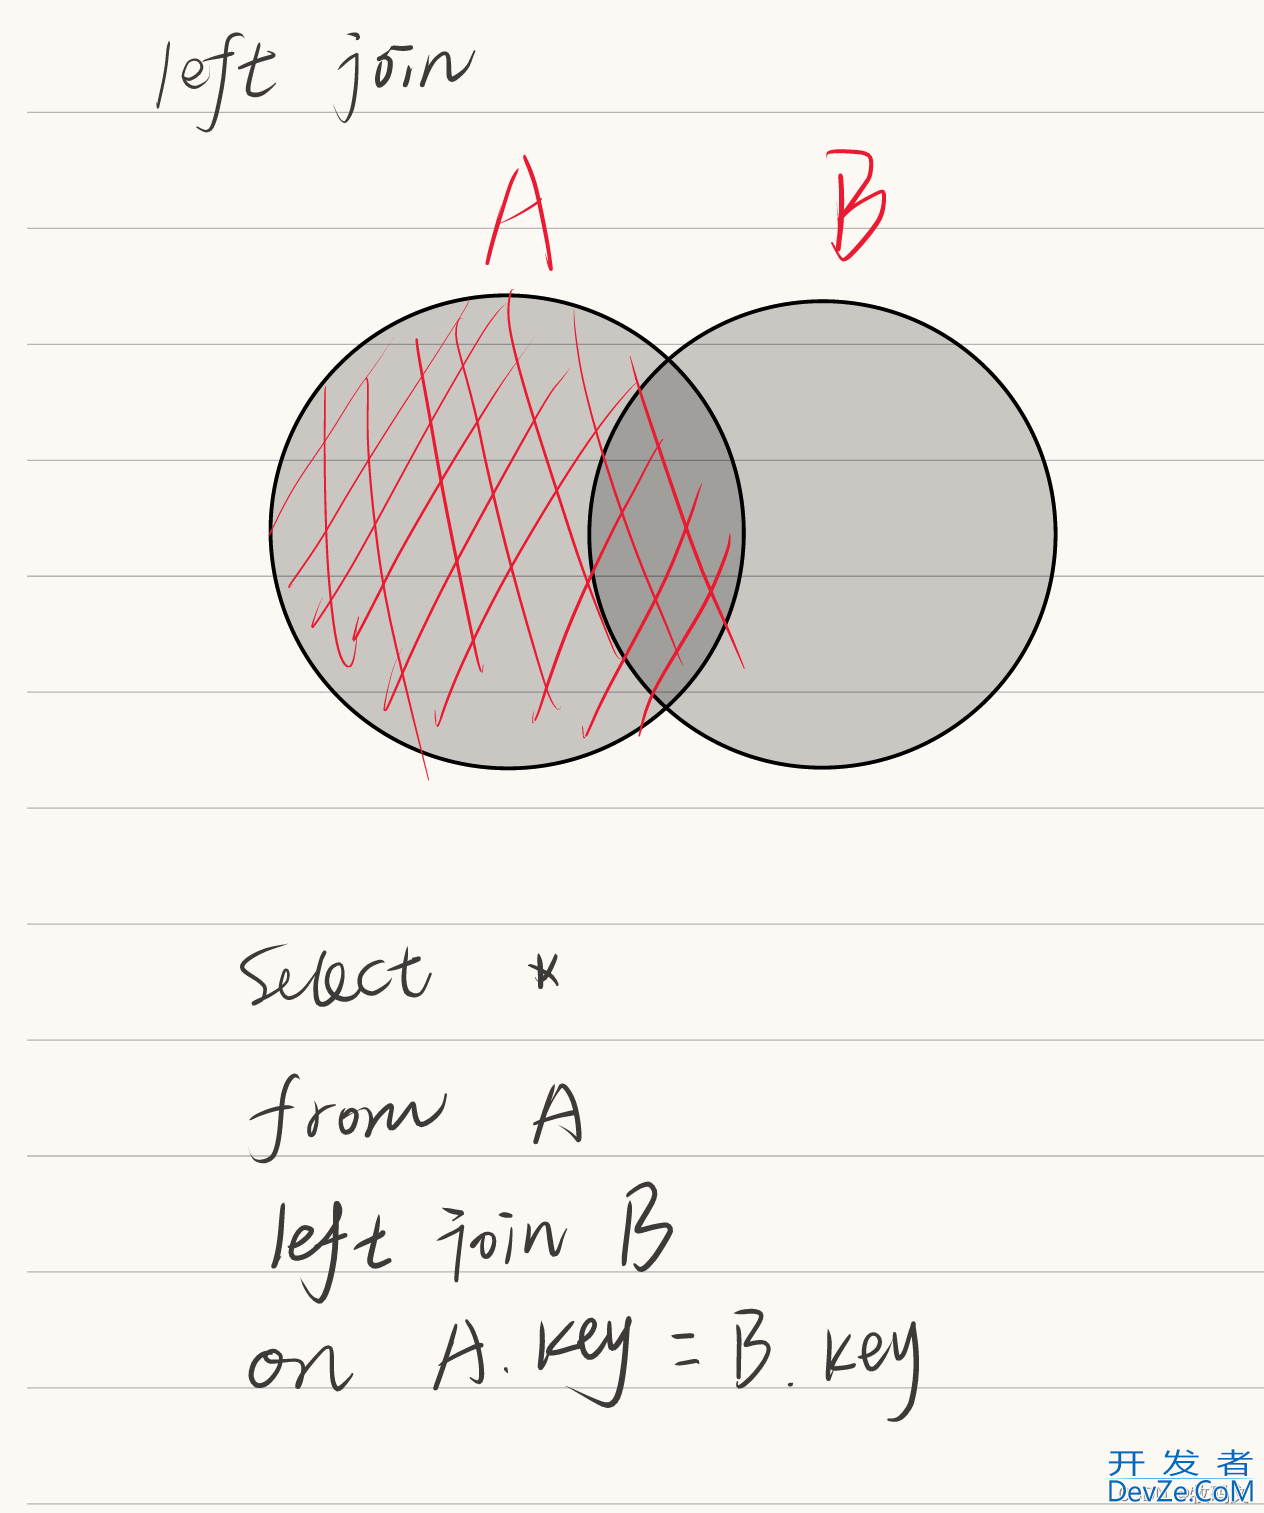 left join
A B
Select *
from A
left join B
on A.key = B.key
开发者
DevZe.CoM